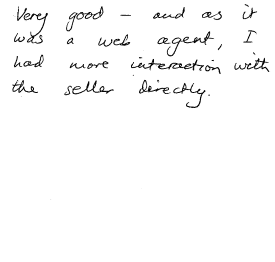 Very good – and as it
was a web agent, I
had more interaction with
the seller directly.